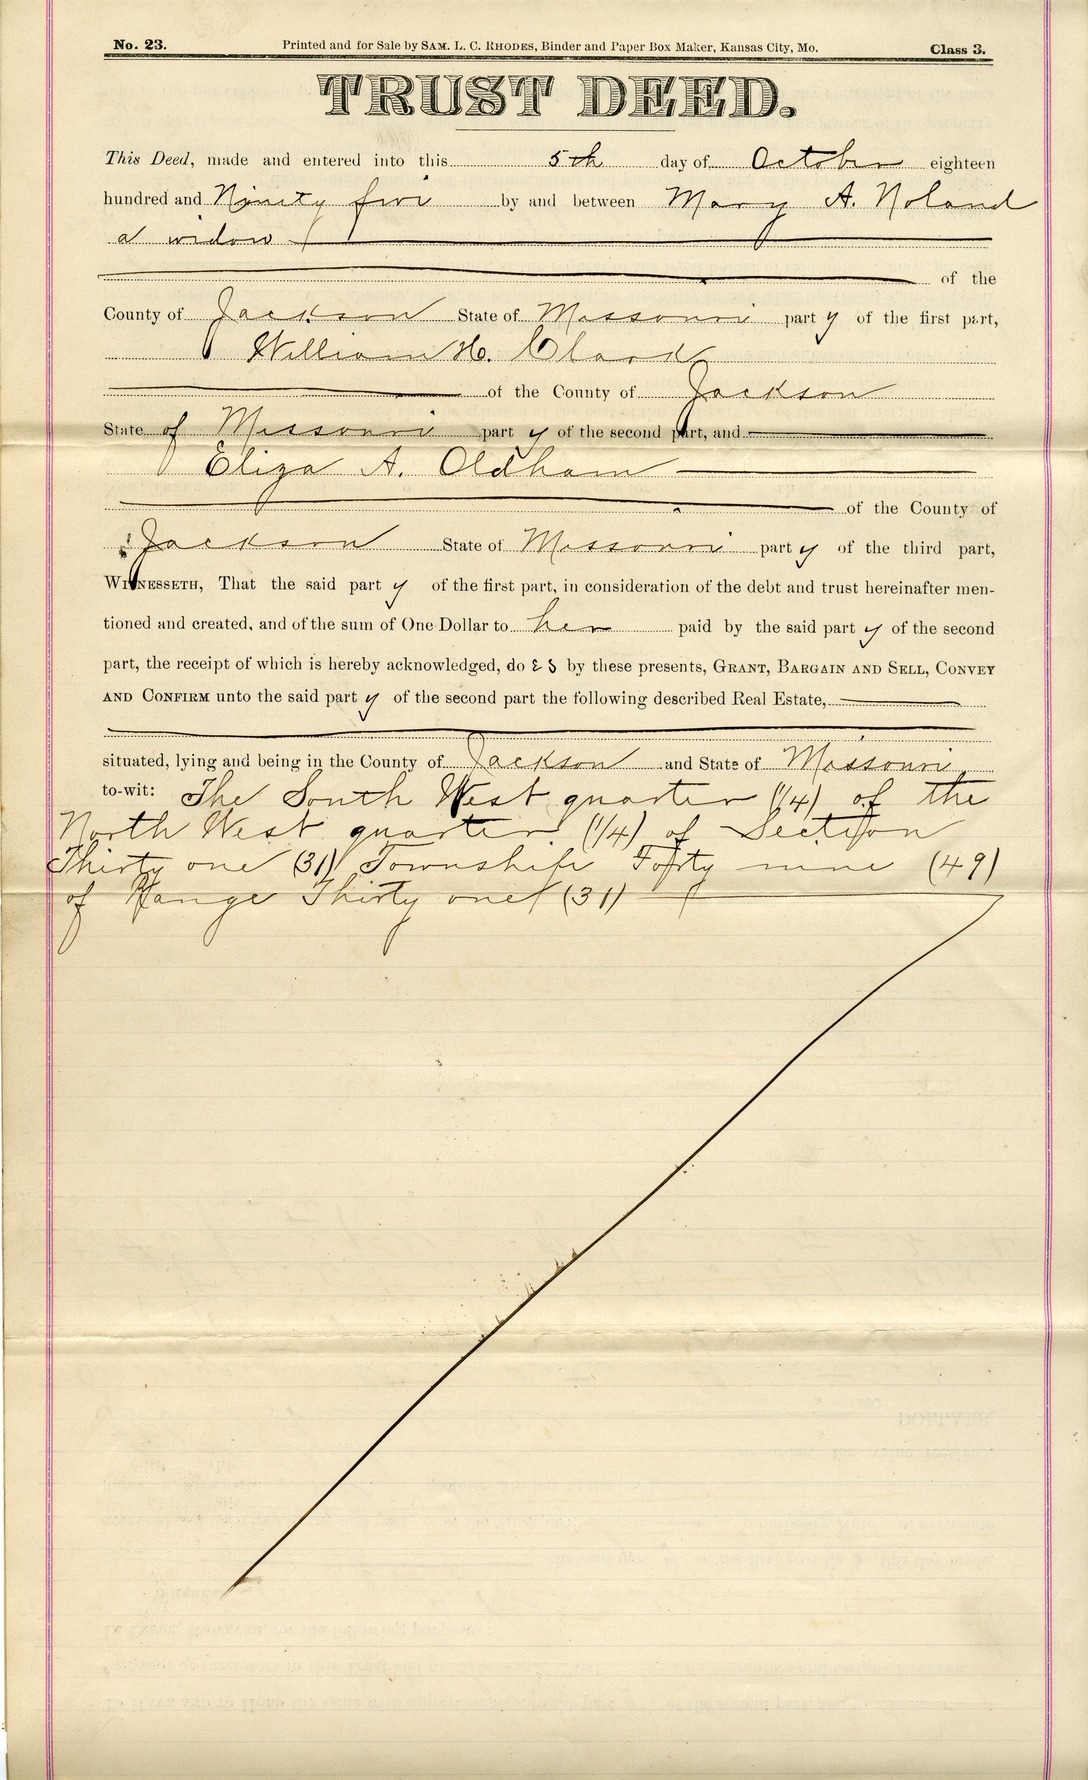 No. 23. Printed and for Sale by SAM. L. C. RHODES, Binder and Paper Box Maker, Kansas City, Mo. Class 3.
TRUST DEED.
This Deed, made and entered into this 5th day of October eighteen
hundred and Ninety five by and between Mary A. Noland
a widow
of the
County of Jackson State of Missouri party of the first part,
William H. Clark
of the County of Jackson
State of Missouri party of the second part, and
Eliza A. Oldham
of the County of
Jackson State of Missouri party of the third part,
WITNESSETH, That the said party of the first part, in consideration of the debt and trust hereinafter men-
tioned and created, and of the sum of One Dollar to her paid by the said party of the second
part, the receipt of which is hereby acknowledged, does by these presents, GRANT, BARGAIN AND SELL, CONVEY
AND CONFIRM unto the said party of the second part the following described Real Estate,
situated, lying and being in the County of Jackson and State of Missouri
to-wit: The South West quarter (1/4) of the
North West quarter (1/4) of Section
Thirty one (31) Township Forty nine (49)
of Range Thirty one (31)